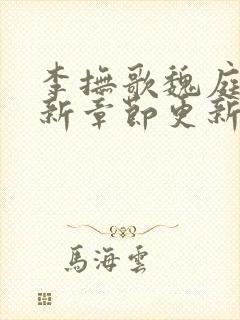 李撫歌魏庭
新章節更新
馬海雲